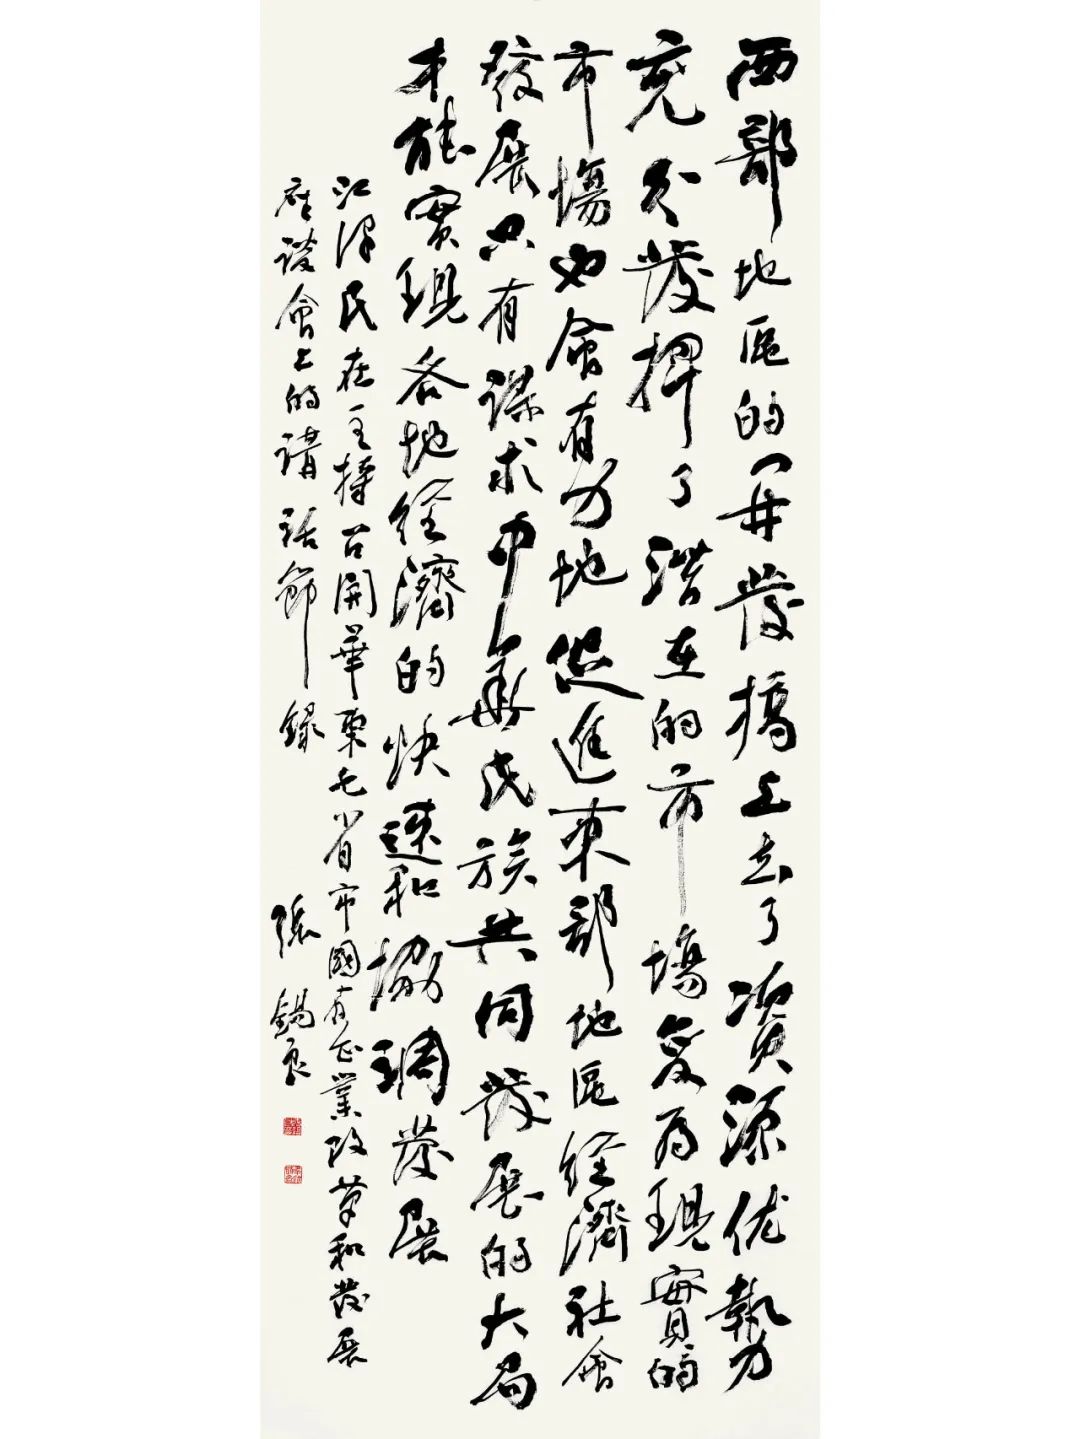 西部地區的開發搞上去了資源优勢
充分發揮了潛在的市場變為現實的
市場也會有力地促進東部地區經濟社會
發展只有謀求中華民族共同發展的大局
才能實現各地經濟的快速和協調發展
江澤民在主持召開華東七省市國有企業改革和發展
座談會上的講話節錄 張錫良